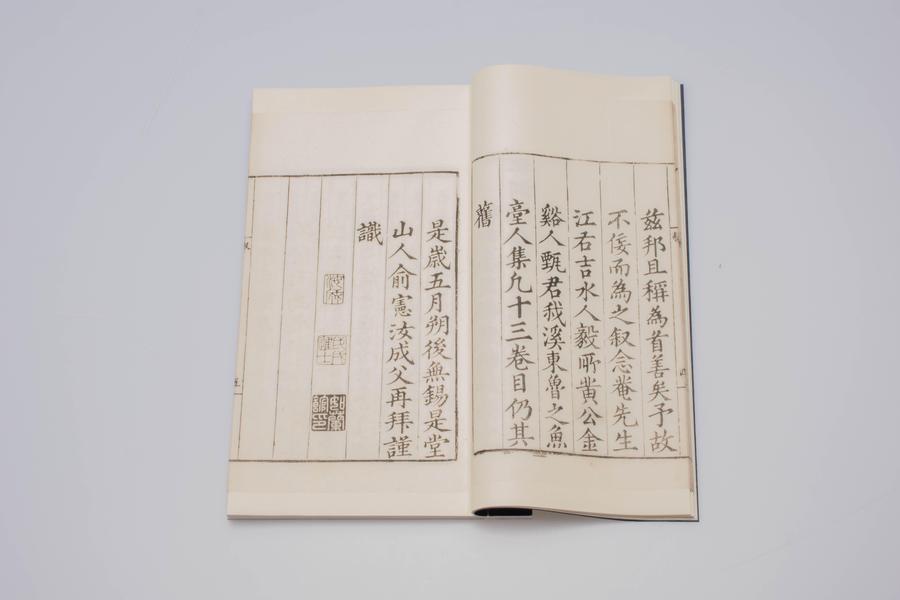 茲邦且稱為首善矣予故
不佞而為之叙念菴先生
江右吉水人毅所黃公金
谿人甄君我溪東魯之魚
臺人集凡十三卷目仍其
舊
是歲五月朔後無錫是堂
山人俞憲汝成父再拜謹
識